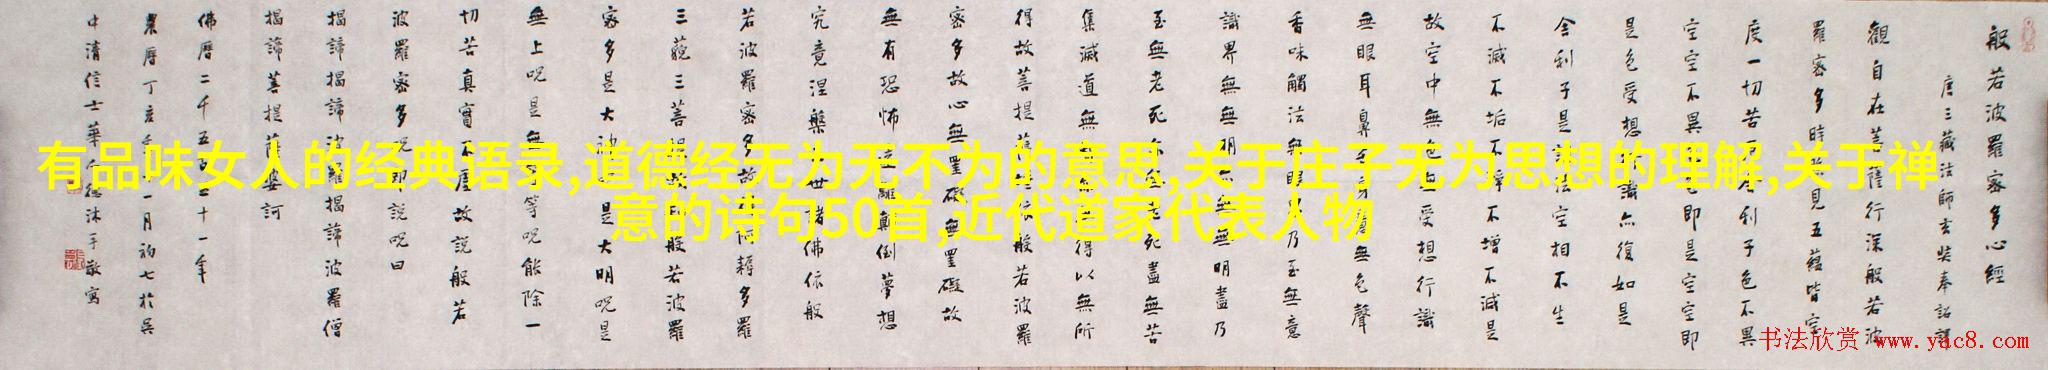 般若波羅蜜多心經
唐三藏法師玄奘奉詔譯
觀自在菩薩行深般若波
羅蜜多時見五蘊皆空
度一切苦利子色不異
空空不異即是空空即
是色受想識亦復如是
舍利子是諸法空相不生
不滅不垢不淨不增不減是
故空中無色無受想行識
無眼耳鼻舌身無色聲
香味觸法無眼乃至無意
識界無無明無無明盡乃
至無老死亦老死盡無苦
集滅道無得以無所
得故菩提薩依般若波羅
蜜多故心無罣礙無罣礙故
無有恐怖遠離顛倒夢想
究竟涅槃世諸佛依般
若波羅蜜多故阿耨多羅
三藐三菩提般若波羅
蜜多是大神是大明咒是
無上咒是無等咒能除一
切苦真實不虛故說般若
波羅蜜多咒即說咒曰
揭諦揭諦波羅揭諦波羅僧
揭諦菩提薩婆訶
佛曆二千五百五十一年
農曆丁亥年一月初七於吳
中清信士華德沐手敬寫
有品味女人的经典语录,道德经无为无不为的意思,关于庄子无为思想的理解,关于禅
意的诗句50首,近代道家代表人物
书法欣赏 www.yac8.com